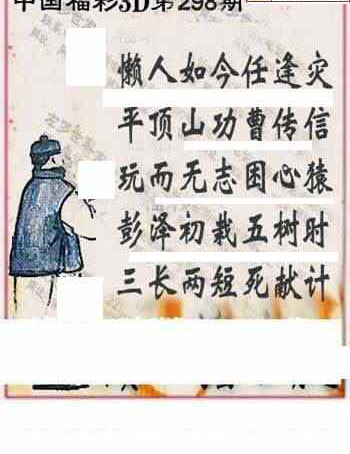 中国福彩3D第298期
懒人如今任逢灾
平顶山功曹传信
玩而无志困心猿
彭泽初栽五树时
三长两短死献计